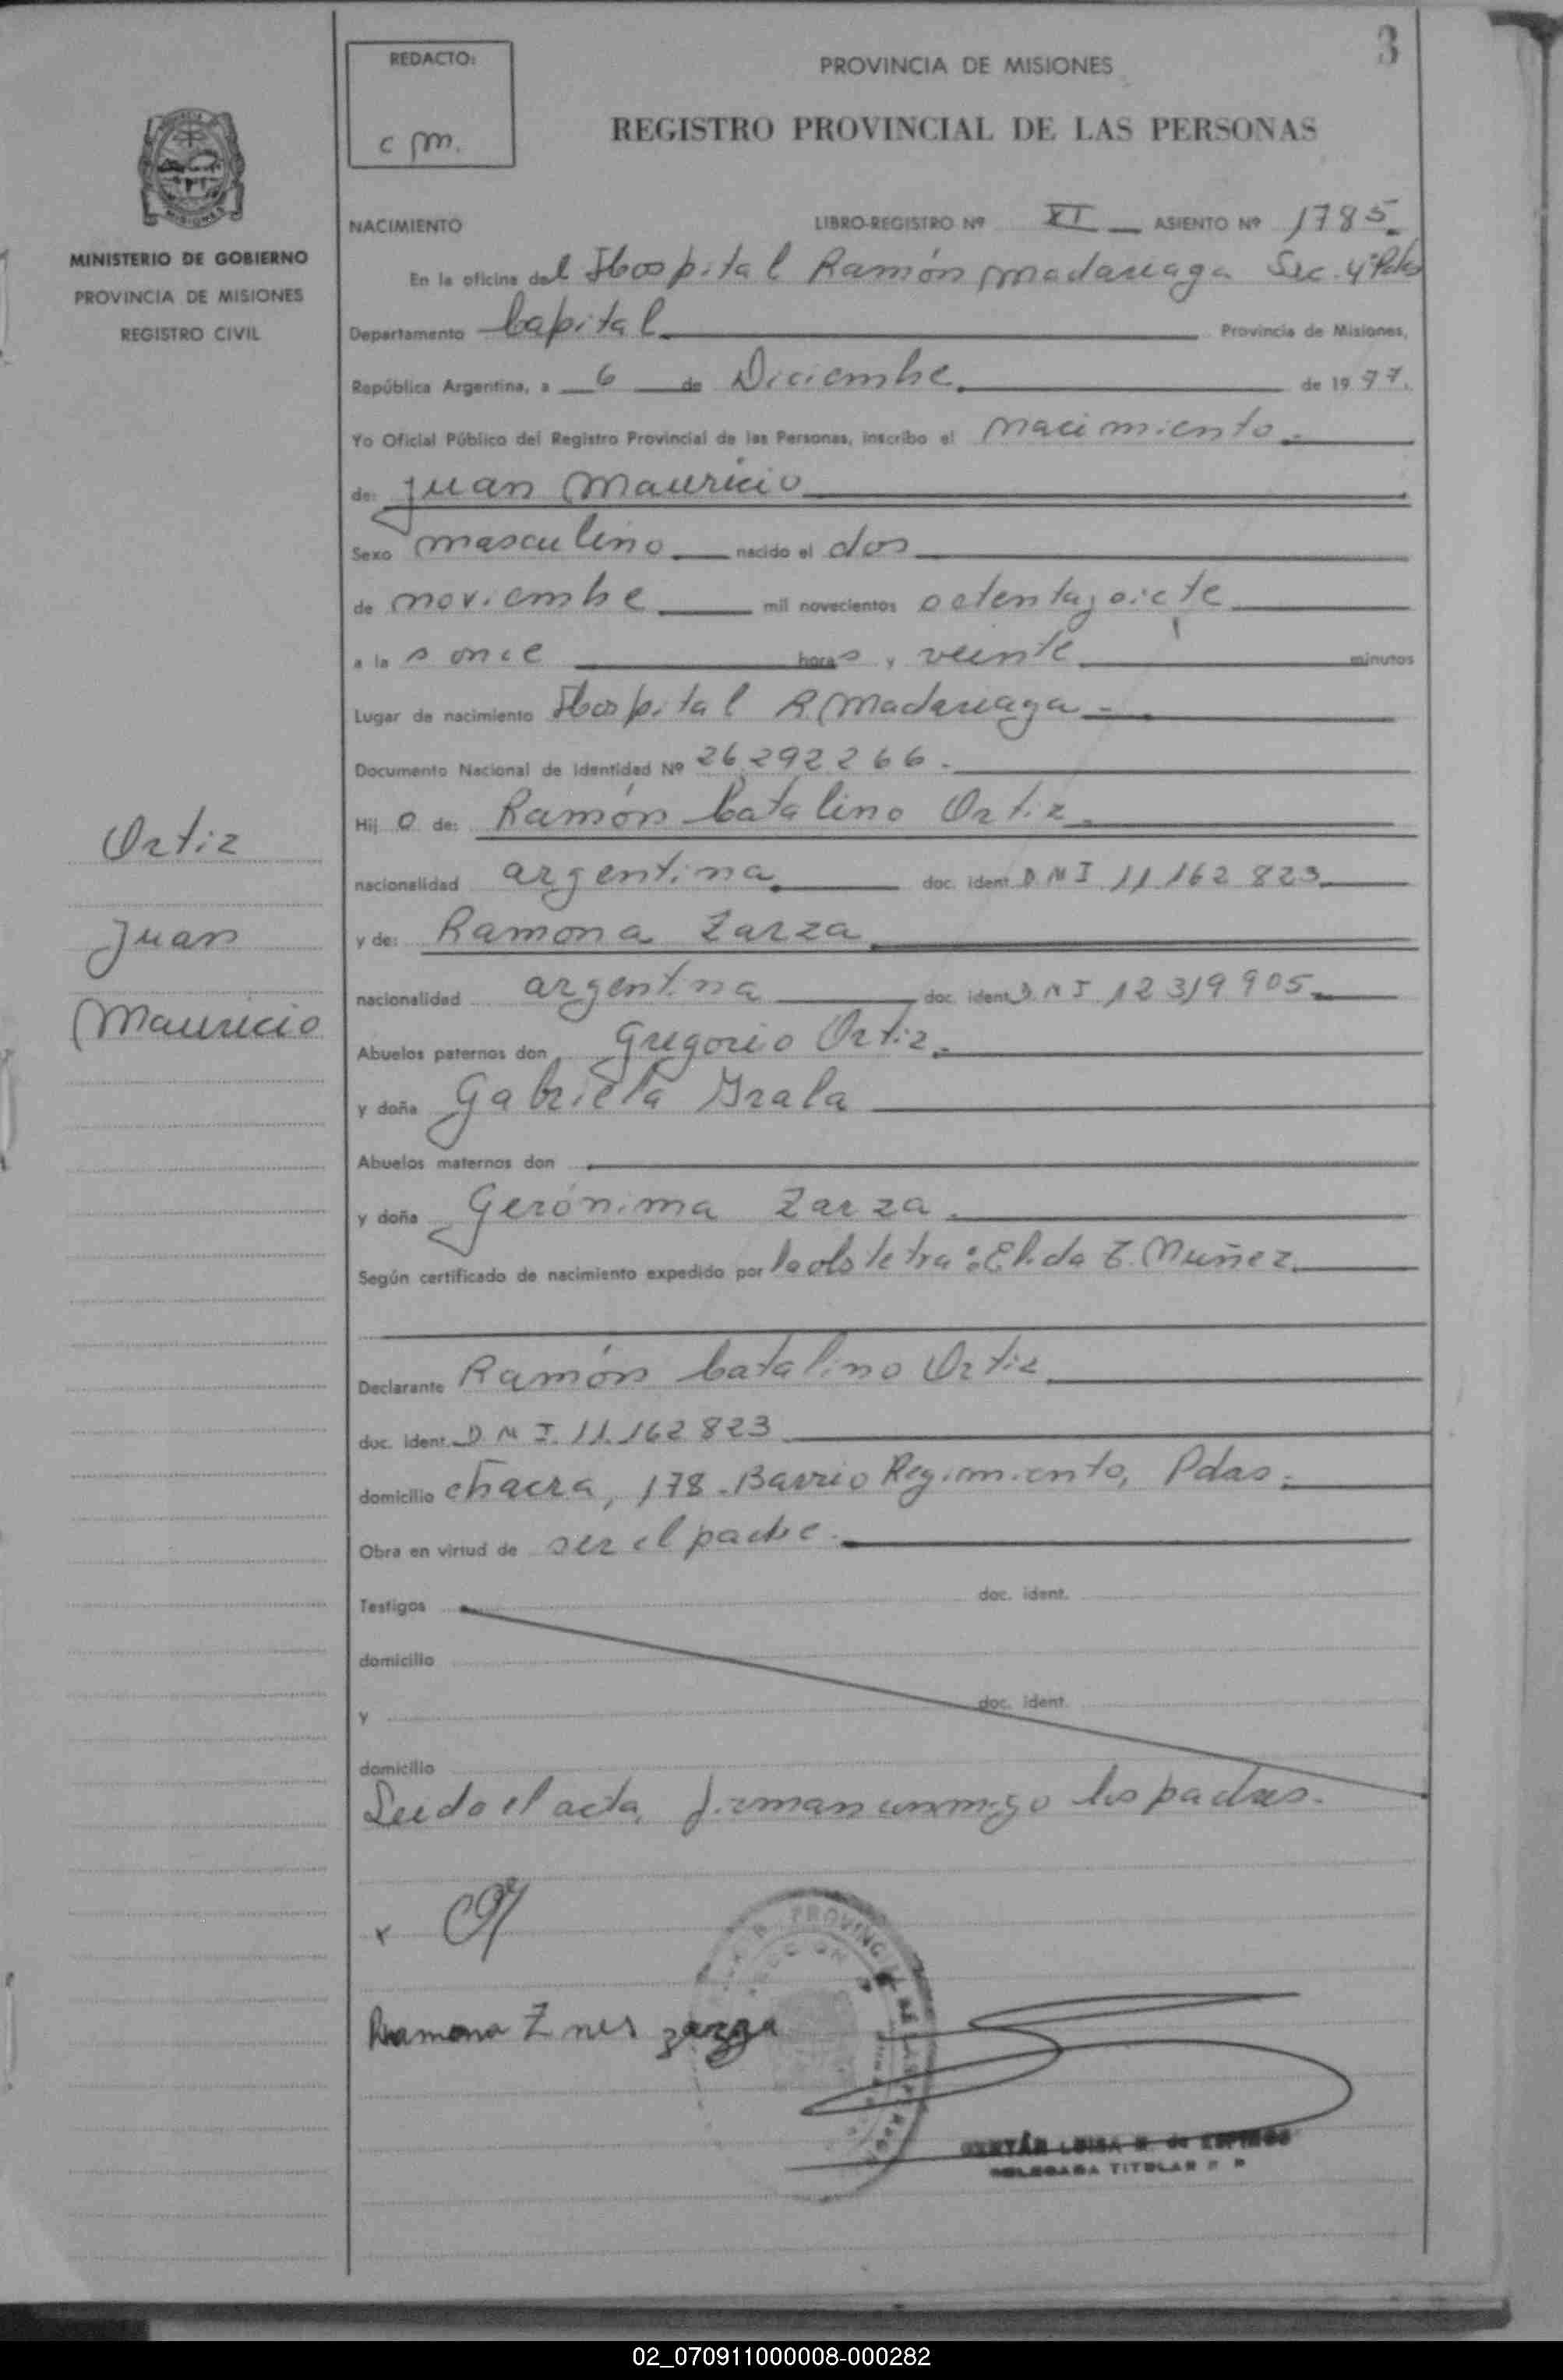 3
REDACTO:
c m.
PROVINCIA DE MISIONES
REGISTRO PROVINCIAL DE LAS PERSONAS
MINISTERIO DE GOBIERNO
PROVINCIA DE MISIONES
REGISTRO CIVIL
NACIMIENTO LIBRO-REGISTRO Nº XI ASIENTO Nº 1785
En la oficina del Hospital Ramón Madariaga Sec. 4ª Pdas
Departamento Capital Provincia de Misiones,
República Argentina, a 6 de Diciembre de 19 77.
Yo Oficial Público del Registro Provincial de las Personas, inscribo el nacimiento
de: Juan Mauricio
Sexo masculino nacido el dos
de noviembre mil novecientos setentaysiete
a las once horas y veinte minutos
Lugar de nacimiento Hospital R. Madariaga
Documento Nacional de Identidad Nº 26.292.266.
Hijo de: Ramón Catalino Ortiz
nacionalidad argentina doc. ident. DNI 11.162 823
y de: Ramona Zarza
nacionalidad argentina doc. ident. DNI 12 319 905
Abuelos paternos don Gregorio Ortiz
y doña Gabriela Irala
Abuelos maternos don
y doña Gerónima Zarza.
Según certificado de nacimiento expedido por la obstetra: Elida Muñez
Declarante Ramón Catalino Ortiz
doc. ident. DNI. 11.162 823
domicilio chacra, 178. Barrio Regimiento, Pdas.
Obra en virtud de ser el padre.
Testigos doc. ident.
domicilio
y doc. ident.
domicilio
Leida el acta, firman conmigo los padres.
Ortiz
Juan
Mauricio
x
Ramona Ines zarza
DELEGADA TITULAR
02_070911000008-000282